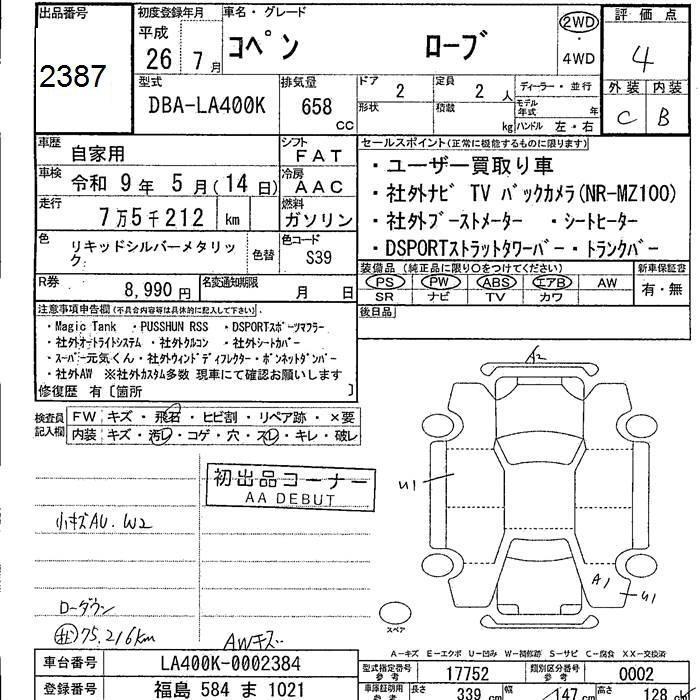 出品番号
2387
初度登録年月
平成
26年 7月
車名・グレード
コペン ローブ
2WD
4WD
評価点
4
外装 内装
C B
型式
DBA-LA400K
排気量
658 cc
ドア
2
定員
2 人
ディーラー・並行
形状
積載
kg
モデル年式 年
ハンドル 左・右
車歴
自家用
シフト
FAT
車検
令和 9年 5月(14日)
冷房
AAC
走行
7万5千212 km
燃料
ガソリン
色
リキッドシルバーメタリック
色替
色コード
S39
R券
8,990円
名変通知期限
月 日
セールスポイント(正常に機能するものに限ります)
・ユーザー買取り車
・社外ナビ TV バックカメラ(NR-MZ100)
・社外ブーストメーター ・シートヒーター
・DSPORTストラットタワーバー・トランクバー
装備品(純正品に限り○をつけてください)
PS PW ABS エアB AW
SR ナビ TV カワ
新車保証書
有・無
後日品
注意事項申告欄(不具合内容等は具体的に記入して下さい)
・Magic Tank ・PUSSHUN RSS ・DSPORTスポーツマフラー
・社外オートライトシステム ・社外クルコン ・社外シートカバー
・スーパー元気くん・社外ウィンドディフレクター・ボンネットダンパー
・社外AW ※社外カスタム多数 現車にて確認お願いします
修復歴 有〔箇所 〕
検査員記入欄
FW キズ・飛石・ヒビ割・リペア跡・×要
内装 キズ・汚レ・コゲ・穴・スレ・キレ・破レ
初出品コーナー
AA DEBUT
小キズAU.W2
ローダウン
75,216km
AWキズ
A2
U1
A1
U1
スペア
A-キズ E-エクボ U-凹み W-補修跡 S-サビ C-腐食 XX-交換済
車台番号
LA400K-0002384
登録番号
福島 584 ま 1021
型式指定番号
参考
17752
類別区分番号
参考
0002
車庫証明用
参考
長さ
339 cm
幅
147 cm
高さ
128 cm